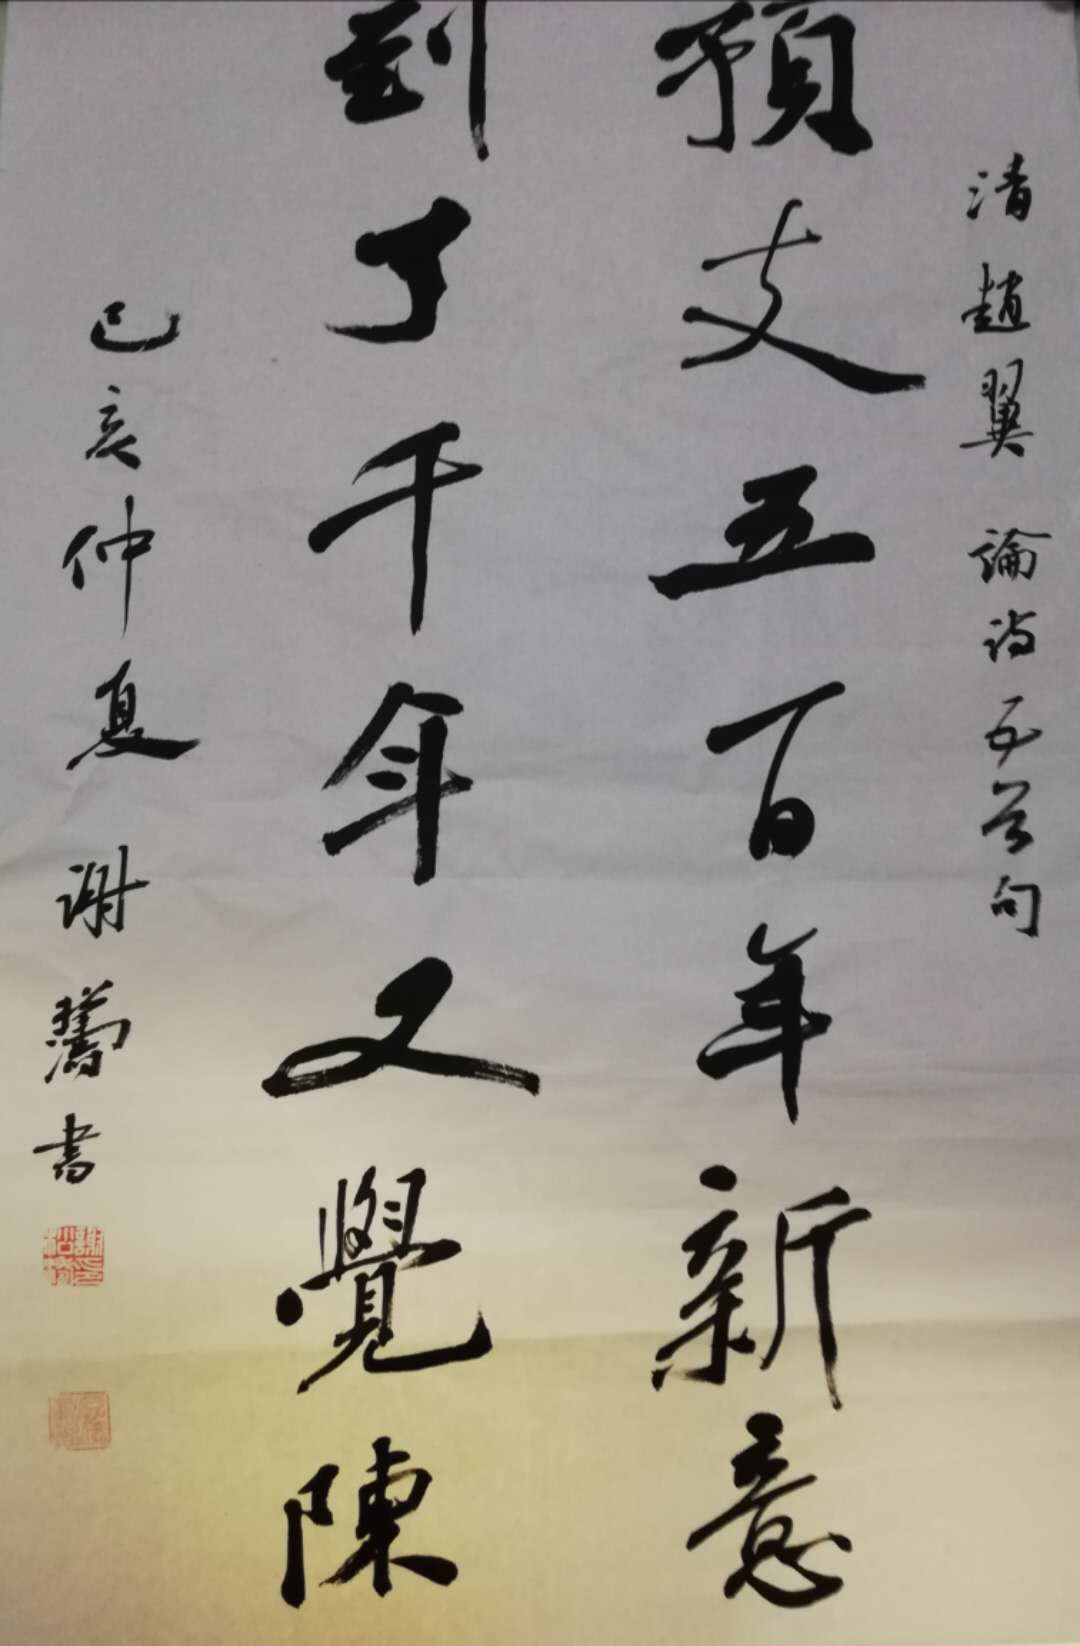 清趙翼論詩五首句
預支五百年新意
到了千年又覺陳
己亥仲夏謝書